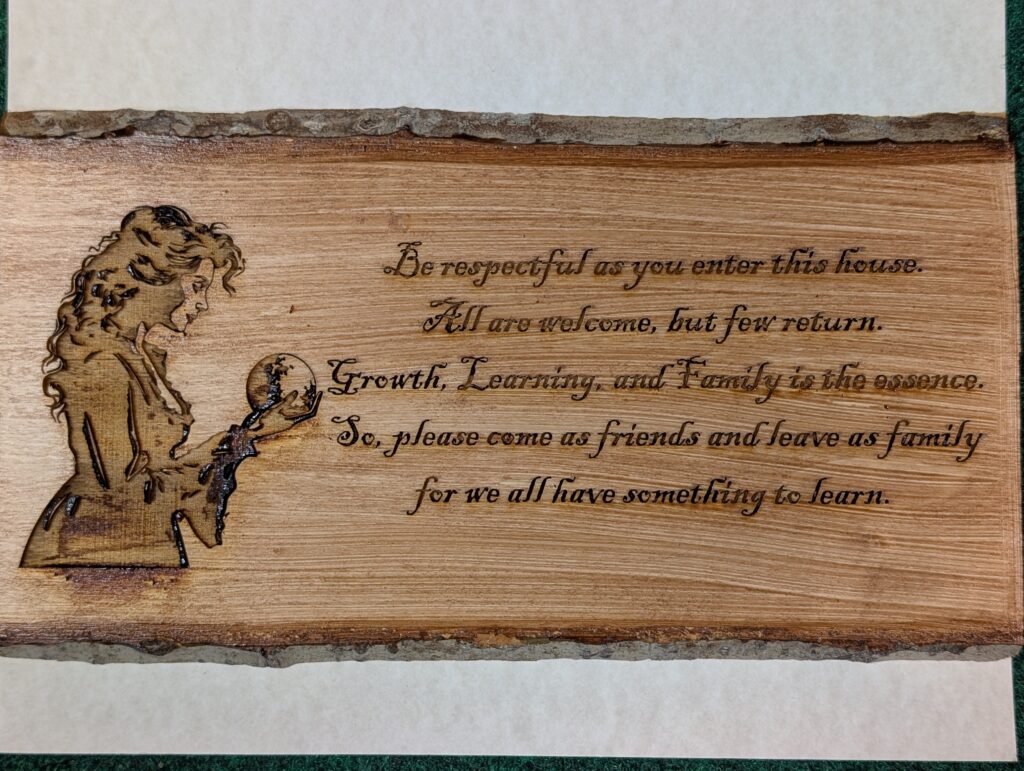 Be respectful as you enter this house.
All are welcome, but few return.
Growth, Learning, and Family is the essence.
So, please come as friends and leave as family
for we all have something to learn.